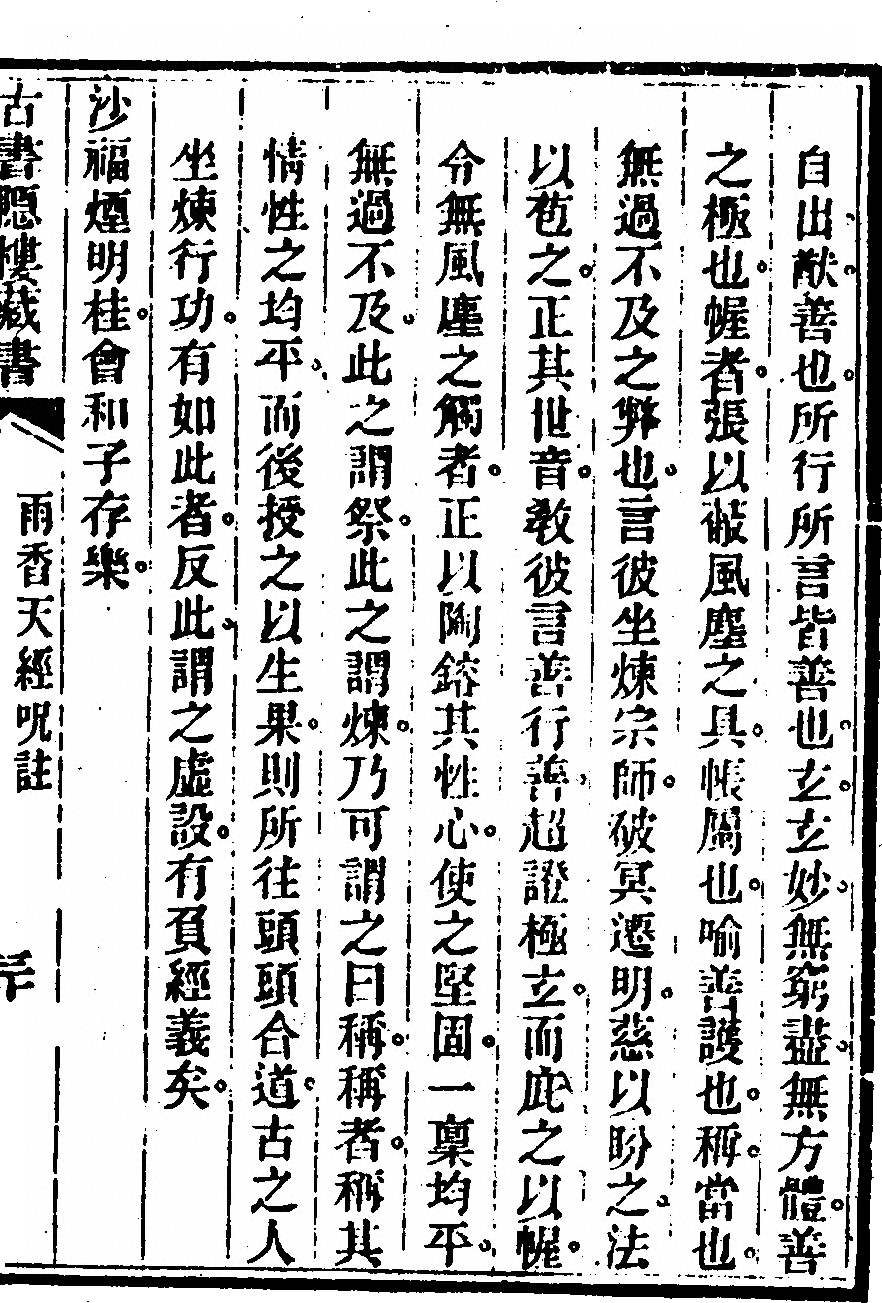 自出猷善也所行所言皆善也玄玄妙無窮盡無方體善
之極也幄者張以蔽風塵之具帳屬也喻善護也稱當也
無過不及之弊也言彼坐煉宗師破冥遷明慈以盼之法
以苞之正其世音敎彼言善行善超證極玄而庇之以幄
令無風塵之觸者正以陶鎔其性心使之堅固一稟均平
無過不及此之謂祭此之謂煉乃可謂之曰稱稱者稱其
情性之均平而後授之以生果則所往頭頭合道古之人
坐煉行功有如此者反此謂之虛設有負經義矣
沙福煙明桂會和子存樂
古書隱樓藏書
雨香天經呪註
二十